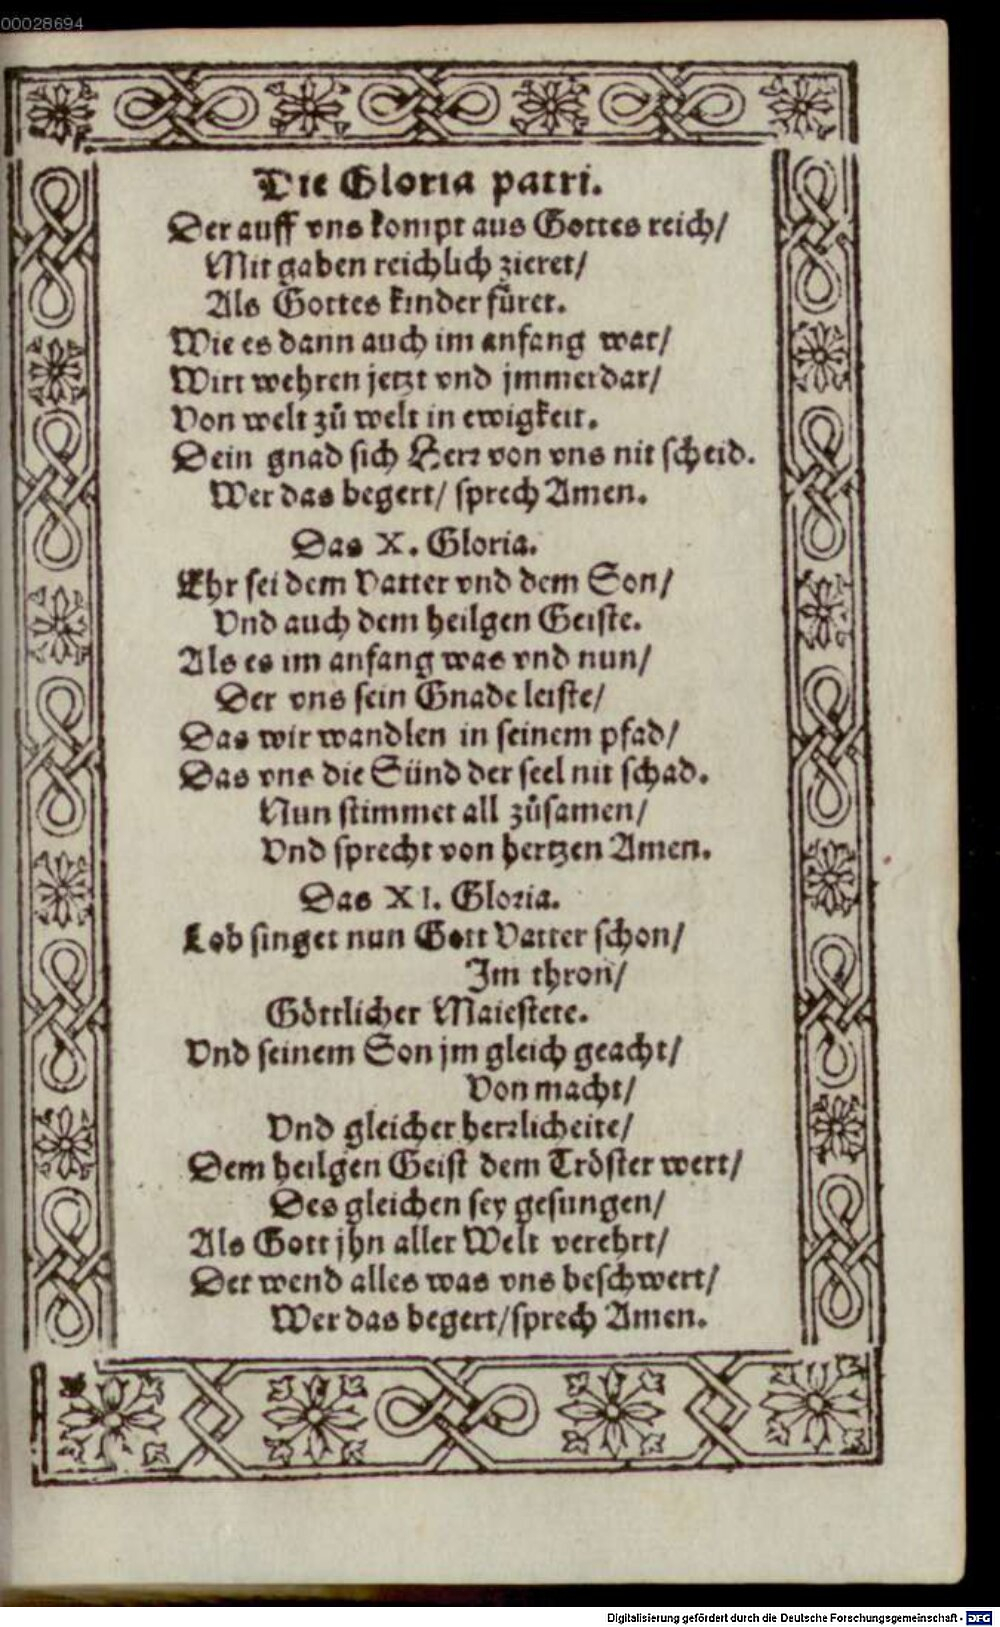 00028694
Die Gloria patri.
Der auff vns kompt aus Gottes reich/
Mit gaben reichlich zieret/
Als Gottes kinder füret.
Wie es dann auch im anfang war/
Wirt wehren jetzt vnd jmmerdar/
Von welt zů welt in ewigkeit.
Dein gnad sich Herr von vns nit scheid.
Wer das begert/ sprech Amen.
Das X. Gloria.
Ehr sei dem Vatter vnd dem Son/
Vnd auch dem heilgen Geiste.
Als es im anfang was vnd nun/
Der vns sein Gnade leiste/
Das wir wandlen in seinem pfad/
Das vns die Sünd der seel nit schad.
Nun stimmet all zůsamen/
Vnd sprecht von hertzen Amen.
Das XI. Gloria.
Lob singet nun Gott Vatter schon/
Im thron/
Göttlicher Maiestete.
Vnd seinem Son jm gleich geacht/
Von macht/
Vnd gleicher herrlicheite/
Dem heilgen Geist dem Tröster wert/
Des gleichen sey gesungen/
Als Gott jhn aller Welt verehrt/
Der wend alles was vns beschwert/
Wer das begert/ sprech Amen.
Digitalisierung gefördert durch die Deutsche Forschungsgemeinschaft - DFG